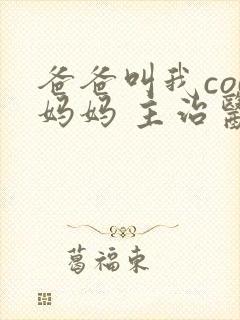 爸爸叫我co
妈妈 主治
葛福東